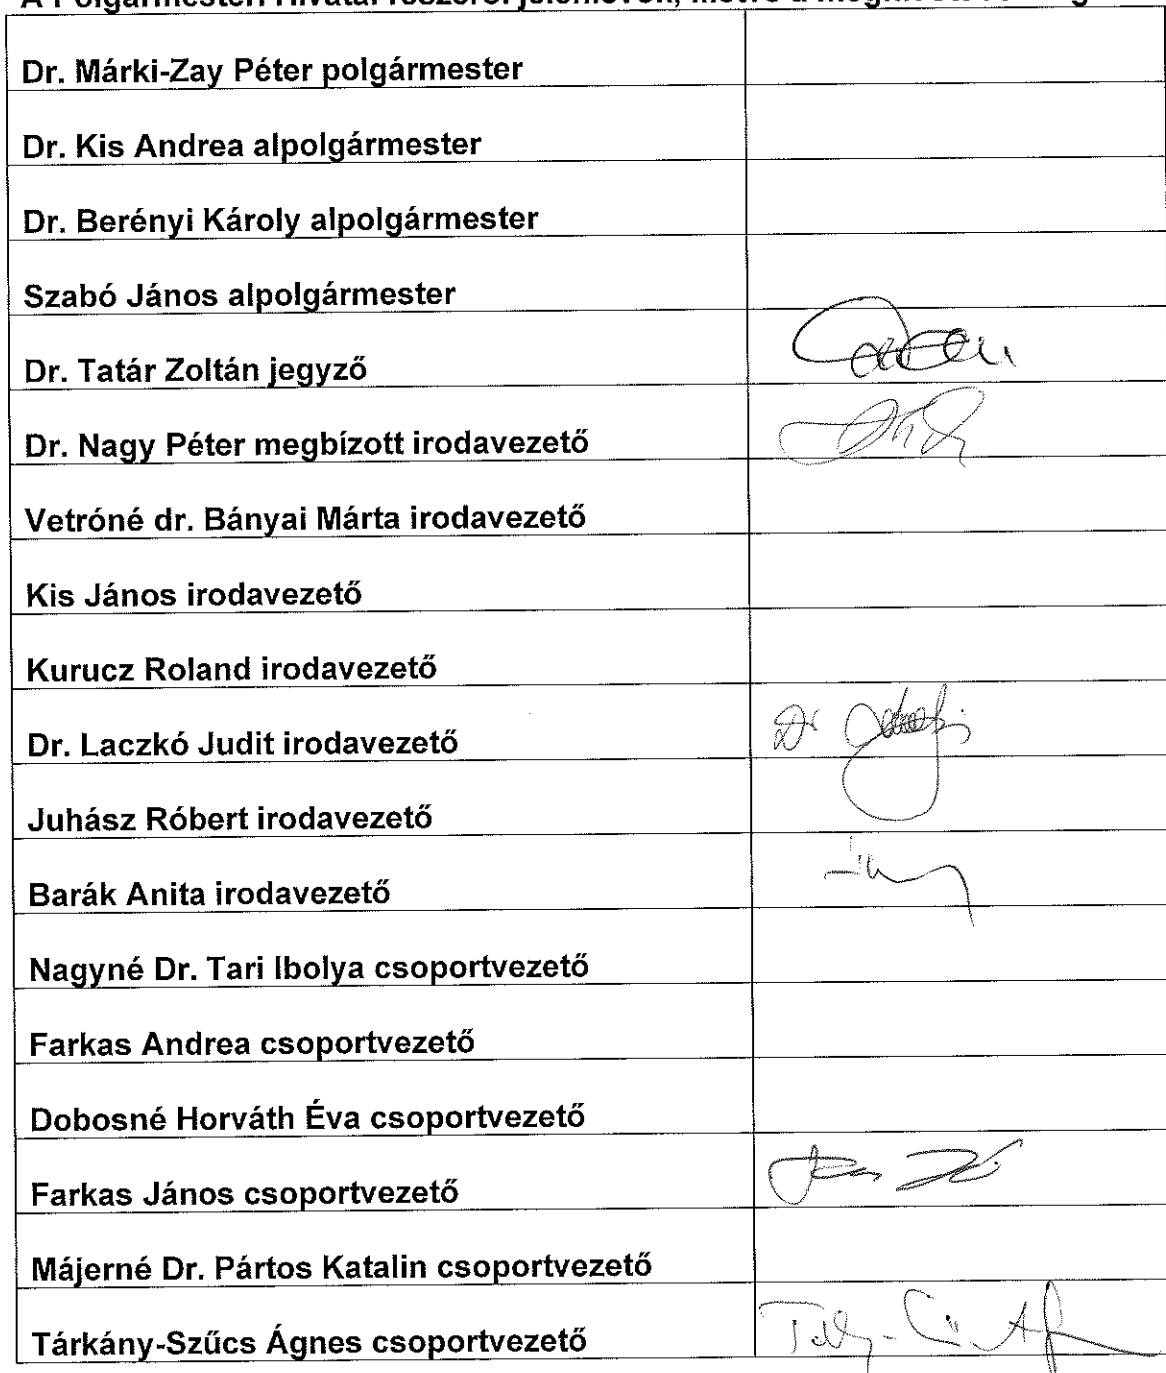 Dr. Márki-Zay Péter polgármester
Dr. Kis Andrea alpolgármester
Dr. Berényi Károly alpolgármester
Szabó János alpolgármester
Dr. Tatár Zoltán jegyző
Dr. Nagy Péter megbízott irodavezető
Vetróné dr. Bányai Márta irodavezető
Kis János irodavezető
Kurucz Roland irodavezető
Dr. Laczkó Judit irodavezető
Dr
Juhász Róbert irodavezető
Barák Anita irodavezető
Nagyné Dr. Tari Ibolya csoportvezető
Farkas Andrea csoportvezető
Dobosné Horváth Éva csoportvezető
Farkas János csoportvezető
Májerné Dr. Pártos Katalin csoportvezető
Tárkány-Szűcs Ágnes csoportvezető